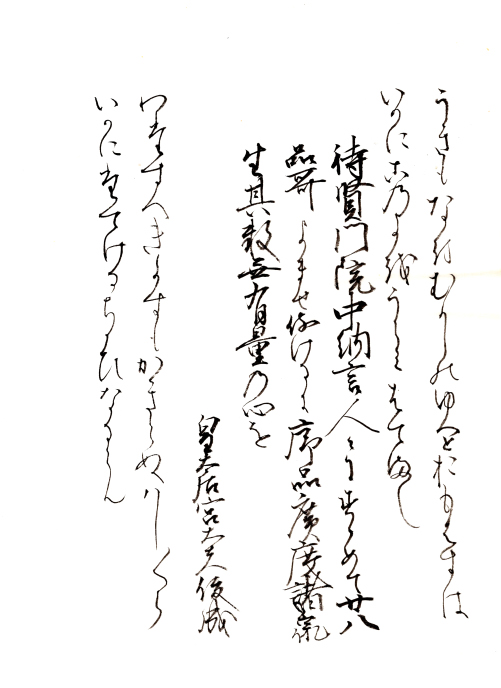 うきもなほむかしのゆへとおもはすは
いかにこのよをうらみはてまし
待賢門院中納言人〻にすゝめて廿八
品哥よませ侍けるに序品廣度諸衆
生其數無有量の心を
皇太后宮大夫俊成
わたすへきかすもかきらぬはし〱ら
いかにたてけるちかひなるらん